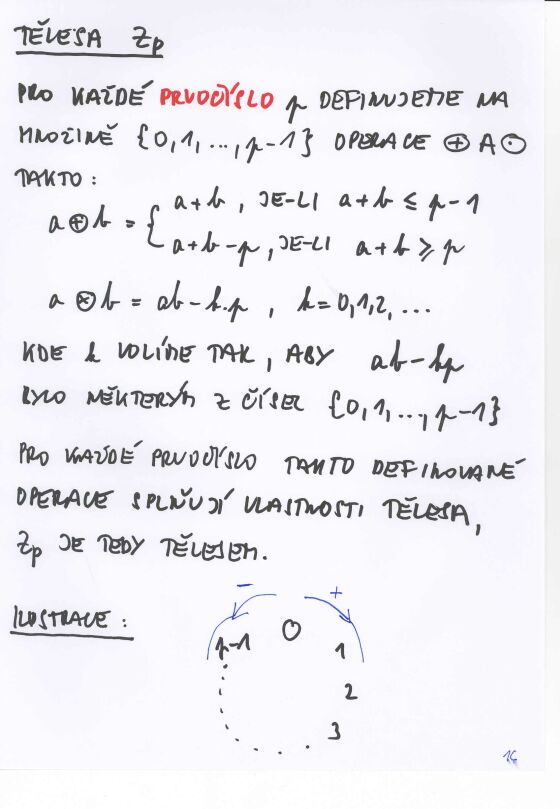 TĚLESA Zp
PRO KAŽDÉ PRVOČÍSLO p DEFINUJEME NA
MNOŽINĚ {0,1,...,p-1} OPERACE ⊕ A ⊙
TAKTO:
a⊕b = { a+b, JE-LI a+b ≤ p-1
a+b-p, JE-LI a+b ≥ p
a ⊗ b = ab - k.p, k=0,1,2,...
KDE k VOLÍME TAK, ABY ab-kp
BYLO NĚKTERÝM Z ČÍSEL {0,1,...,p-1}
PRO KAŽDÉ PRVOČÍSLO TAKTO DEFINOVANÉ
OPERACE SPLŇUJÍ VLASTNOSTI TĚLESA,
Zp JE TEDY TĚLESEM.
ILUSTRACE:
- +
p-1 0 1
2
3
16